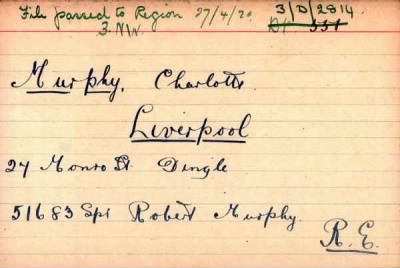 File passed to Region 27/4/20 3/D/2814.
3. N.W.
Murphy, Charlotte.
Liverpool
24 Monro St. Dingle
51683 Spr Robert Murphy.
R.E.